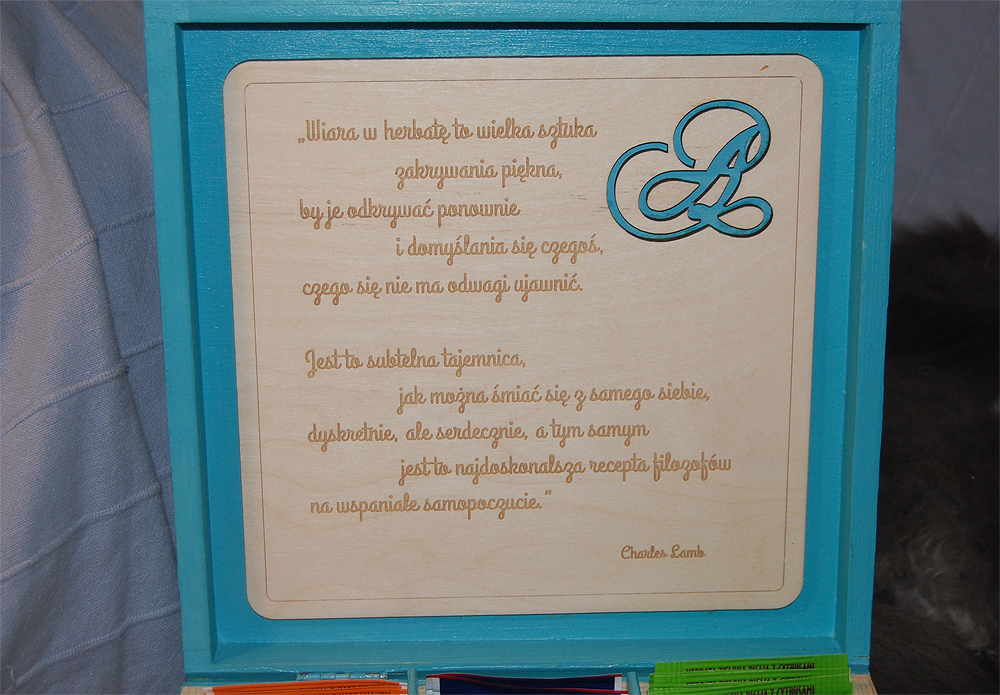 „Wiara w herbatę to wielka sztuka
zakrywania piękna,
by je odkrywać ponownie
i domyślania się czegoś,
czego się nie ma odwagi ujawnić.
Jest to subtelna tajemnica,
jak można śmiać się z samego siebie,
dyskretnie, ale serdecznie, a tym samym
jest to najdoskonalsza recepta filozofów
na wspaniałe samopoczucie.”
Charles Lamb
HERBATA ZIELONA PIGJA Z CYTRUSAMI
Z CYTRUSAMI